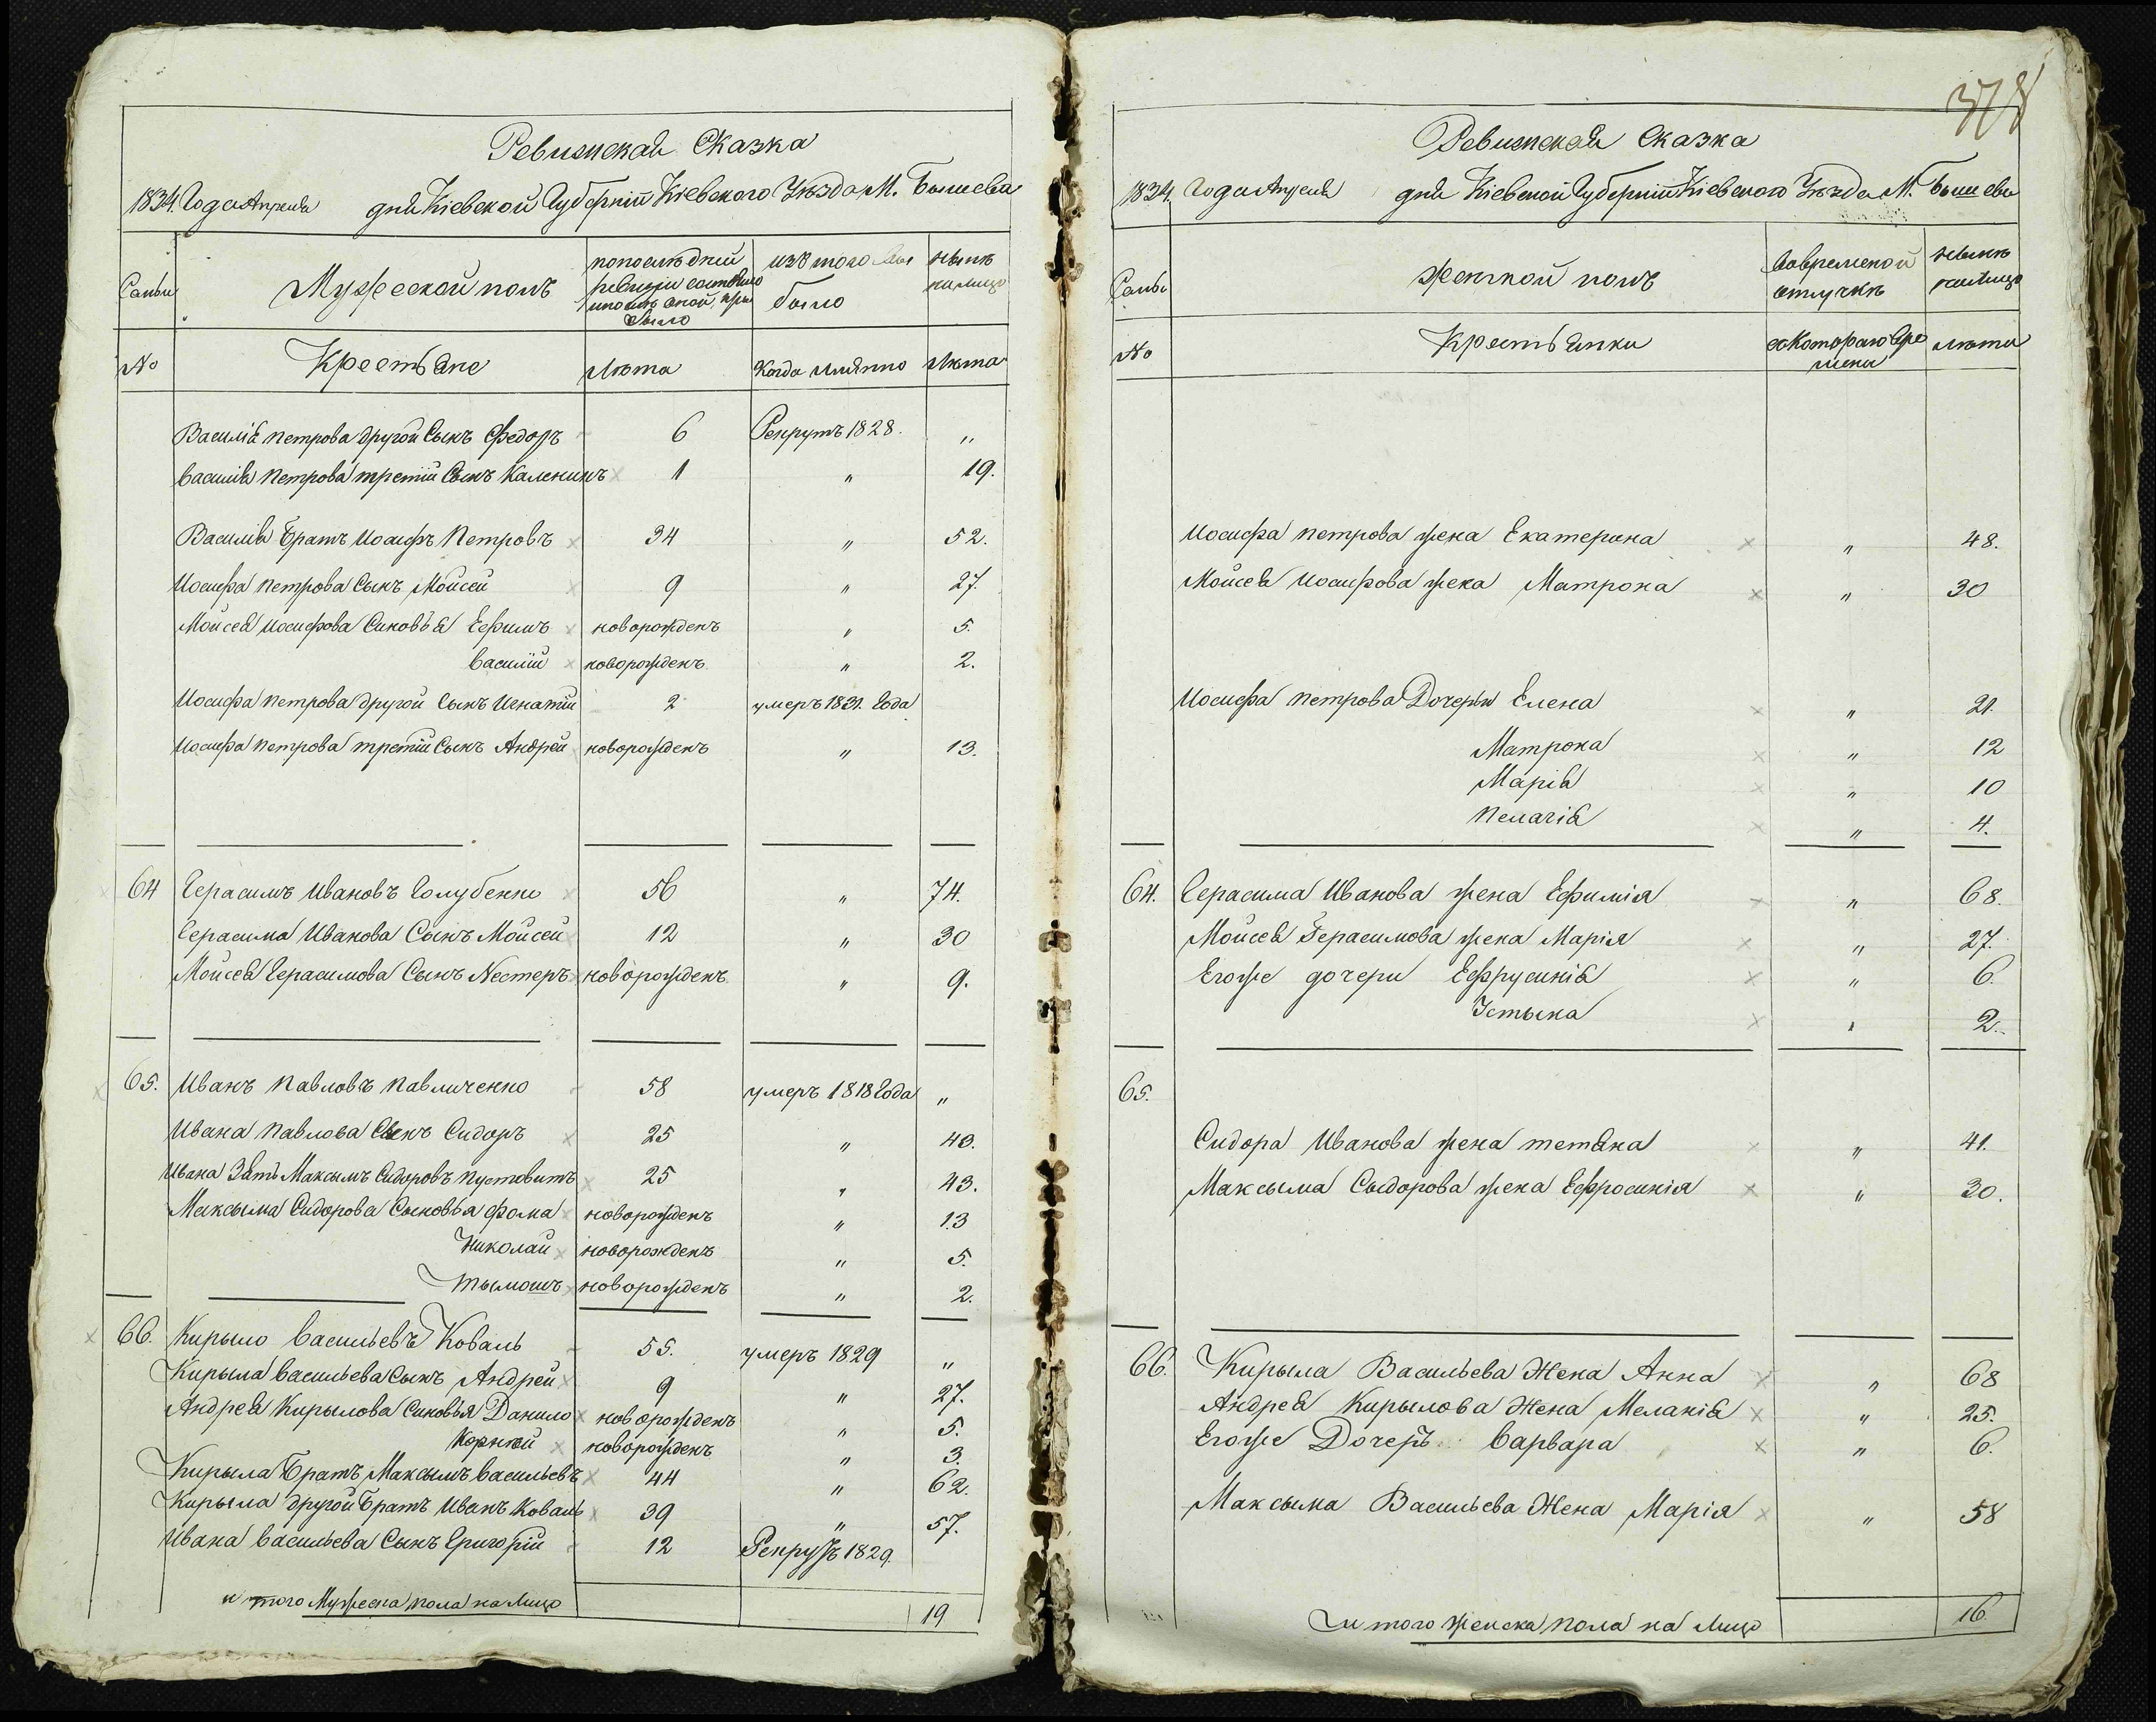 Ревизская Сказка
1834. Года Апреля дня Кіевской Губерніи Кіевского Уезда М. Бышева
Семьи
Мужеской полъ
по последней ревизии состояло и после оной прибыло
изъ того числа выбыло
ныне на лицо
No
Крестьяне
Лета
Когда имянно
Лета
Василія Петрова другой Сынъ Федоръ 6 Рекрутъ 1828. "
Василія Петрова третій Сынъ Каленикъ 1 " 19.
Василія Братъ Иосифъ Петровъ 34 " 52.
Иосифа Петрова Сынъ Мойсей 9 " 27.
Мойсея Иосифова Синовья Ефимъ новорожденъ " 5.
Василій новорожденъ " 2.
Иосифа Петрова другой Сынъ Игнатій 2 умеръ 1831. Года
Иосифа Петрова третій Сынъ Андрей новорожденъ " 13.
64 Герасимъ Ивановъ Голубенко 56 " 74.
Герасима Иванова Сынъ Мойсей 12 " 30
Мойсея Герасимова Сынъ Нестеръ новорожденъ " 9.
65. Иванъ Павловъ Павличенко 58 умеръ 1818 Года "
Ивана Павлова Сынъ Сидоръ 25 " 43.
Ивана Зять Максымъ Сидоровъ Пустовитъ 25 " 43.
Максыма Сидорова Сыновья Фома новорожденъ " 13
Николай новорожденъ " 5.
Тымошъ новорожденъ " 2.
66. Кирыло Васильевъ Коваль 55. умеръ 1829 "
Кирыла Васильева Сынъ Андрей 9 " 27.
Андрея Кирылова Синовья Данило новорожденъ " 5.
Корней новорожденъ " 3.
Кирыла Братъ Максымъ Васильевъ 44 " 62.
Кирыла другой Братъ Иванъ Коваль 39 " 57.
Ивана Васильева Сынъ Григорій 12 Рекрутъ 1829.
и того Мужеска пола на лицо 19
378
Ревизская Сказка
1834. Года Апреля дня Кіевской Губерніи Кіевского Уезда М. Бышева
Семьи
Женской полъ
Во временной отлучке
ныне на лицо
No
Крестьянки
съ Котораго времени
лета
Иосифа Петрова жена Екатерина " 48.
Мойсея Иосифова жена Матрона " 30
Иосифа Петрова Дочеры Елена " 21.
Матрона " 12
Марія " 10
Пелагія " 4.
64. Герасима Иванова жена Ефимія " 68.
Мойсея Герасимова жена Марія " 27.
Егоже дочери Ефрусинія " 6.
Устына " 2.
65.
Сидора Иванова жена Тетяна " 41.
Максыма Сыдорова жена Ефросинія " 30.
66. Кирыла Васильева Жена Анна " 68
Андрея Кирылова Жена Меланія " 25.
Егоже Дочерь Варвара " 6.
Максыма Васильева Жена Марія " 58
и того женска пола на лицо 16.